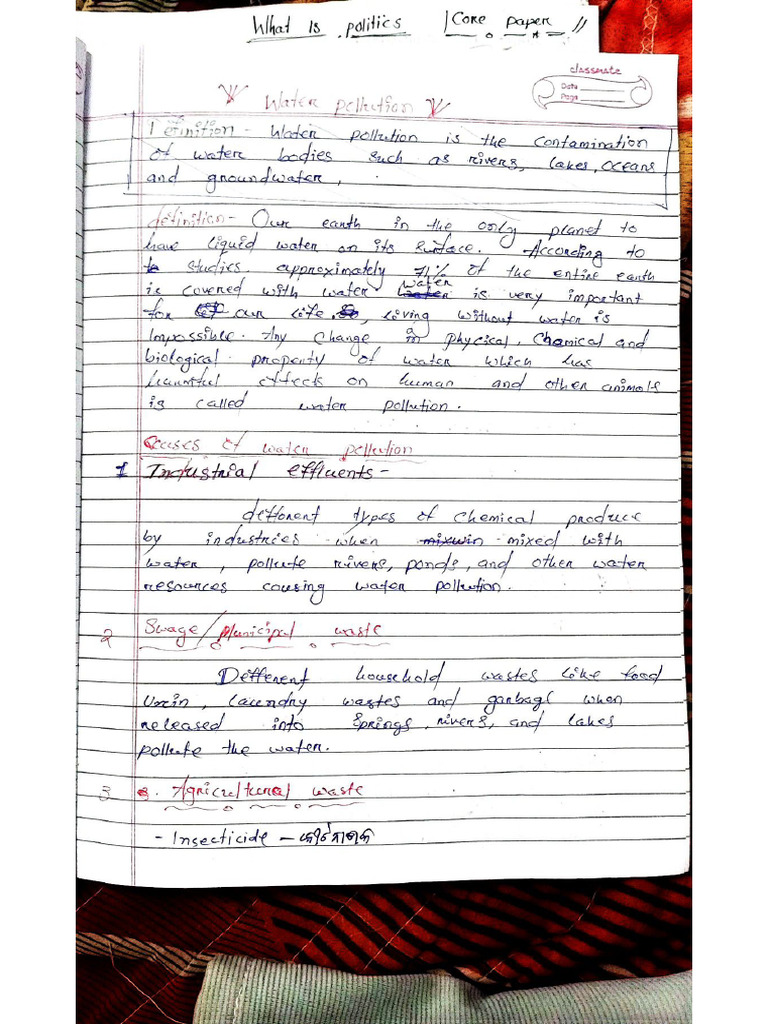 What is politics / Core paper //
classmate
Date
Page
Water pollution
Definition - Water pollution is the contamination
of water bodies such as rivers, lakes, oceans
and groundwater,
definition - Our earth in the only planet to
have liquid water on its surface. According to
studies approximately 71% of the entire earth
is covered with water water is very important
for our life, living without water is
Impossible. Any change in phycical, chemical and
biological property of water which has
harmful effects on human and other animals
is called water pollution.
Causes of water pollution
1 Industrial effluents -
defferent types of chemical produce
by industries when mixed with
water, pollute rivers, ponds, and other water
resources causing water pollution.
2 Swage/Municipal waste
Defferent household wastes like food
Urin, laundry wastes and garbage when
released into springs, rivers, and lakes
pollute the water.
3 Agricultural waste
- Insecticide -